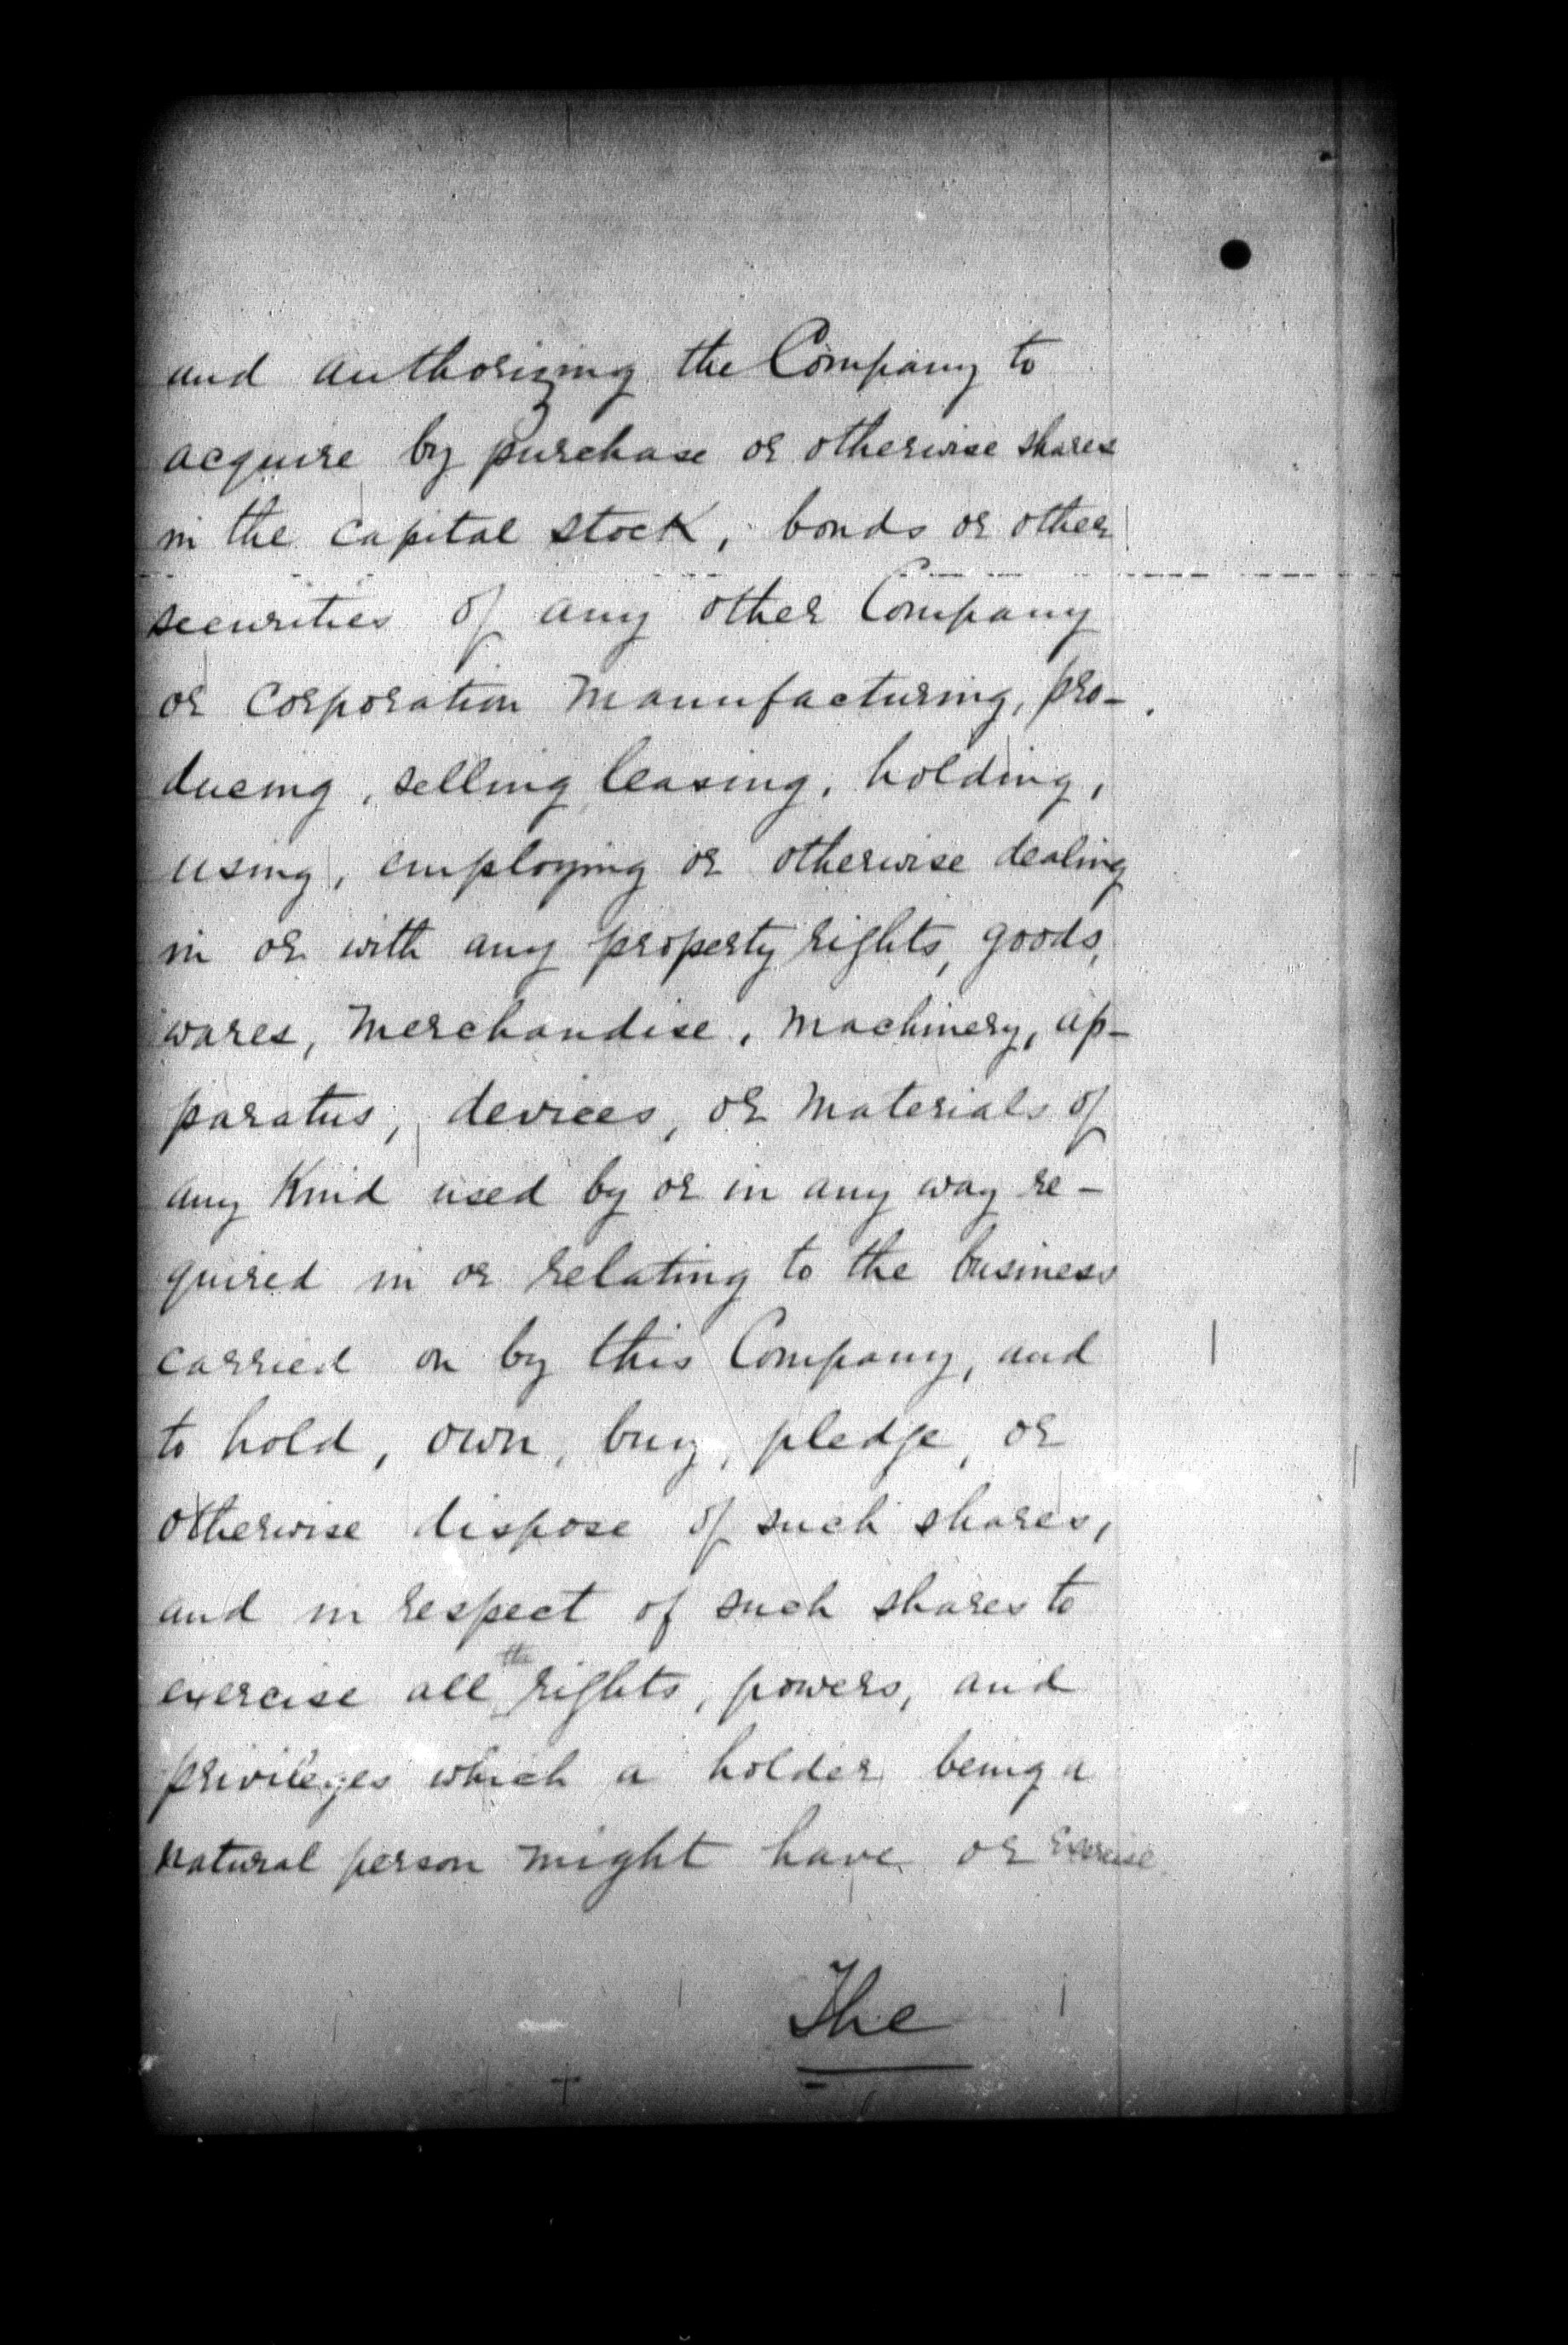 and authorizing the Company to
acquire by purchase or otherwise shares
in the capital stock, bonds or other
securities of any other Company
or corporation manufacturing, pro-
ducing, selling, leasing, holding,
using, employing or otherwise dealing
in or with any property rights, goods,
wares, merchandise, machinery, ap-
paratus, devices, or materials of
any kind used by or in any way re-
quired in or relating to the business
carried on by this Company, and
to hold, own, buy, pledge, or
otherwise dispose of such shares,
and in respect of such shares to
exercise all the rights, powers, and
privileges which a holder being a
natural person might have or exercise.
The